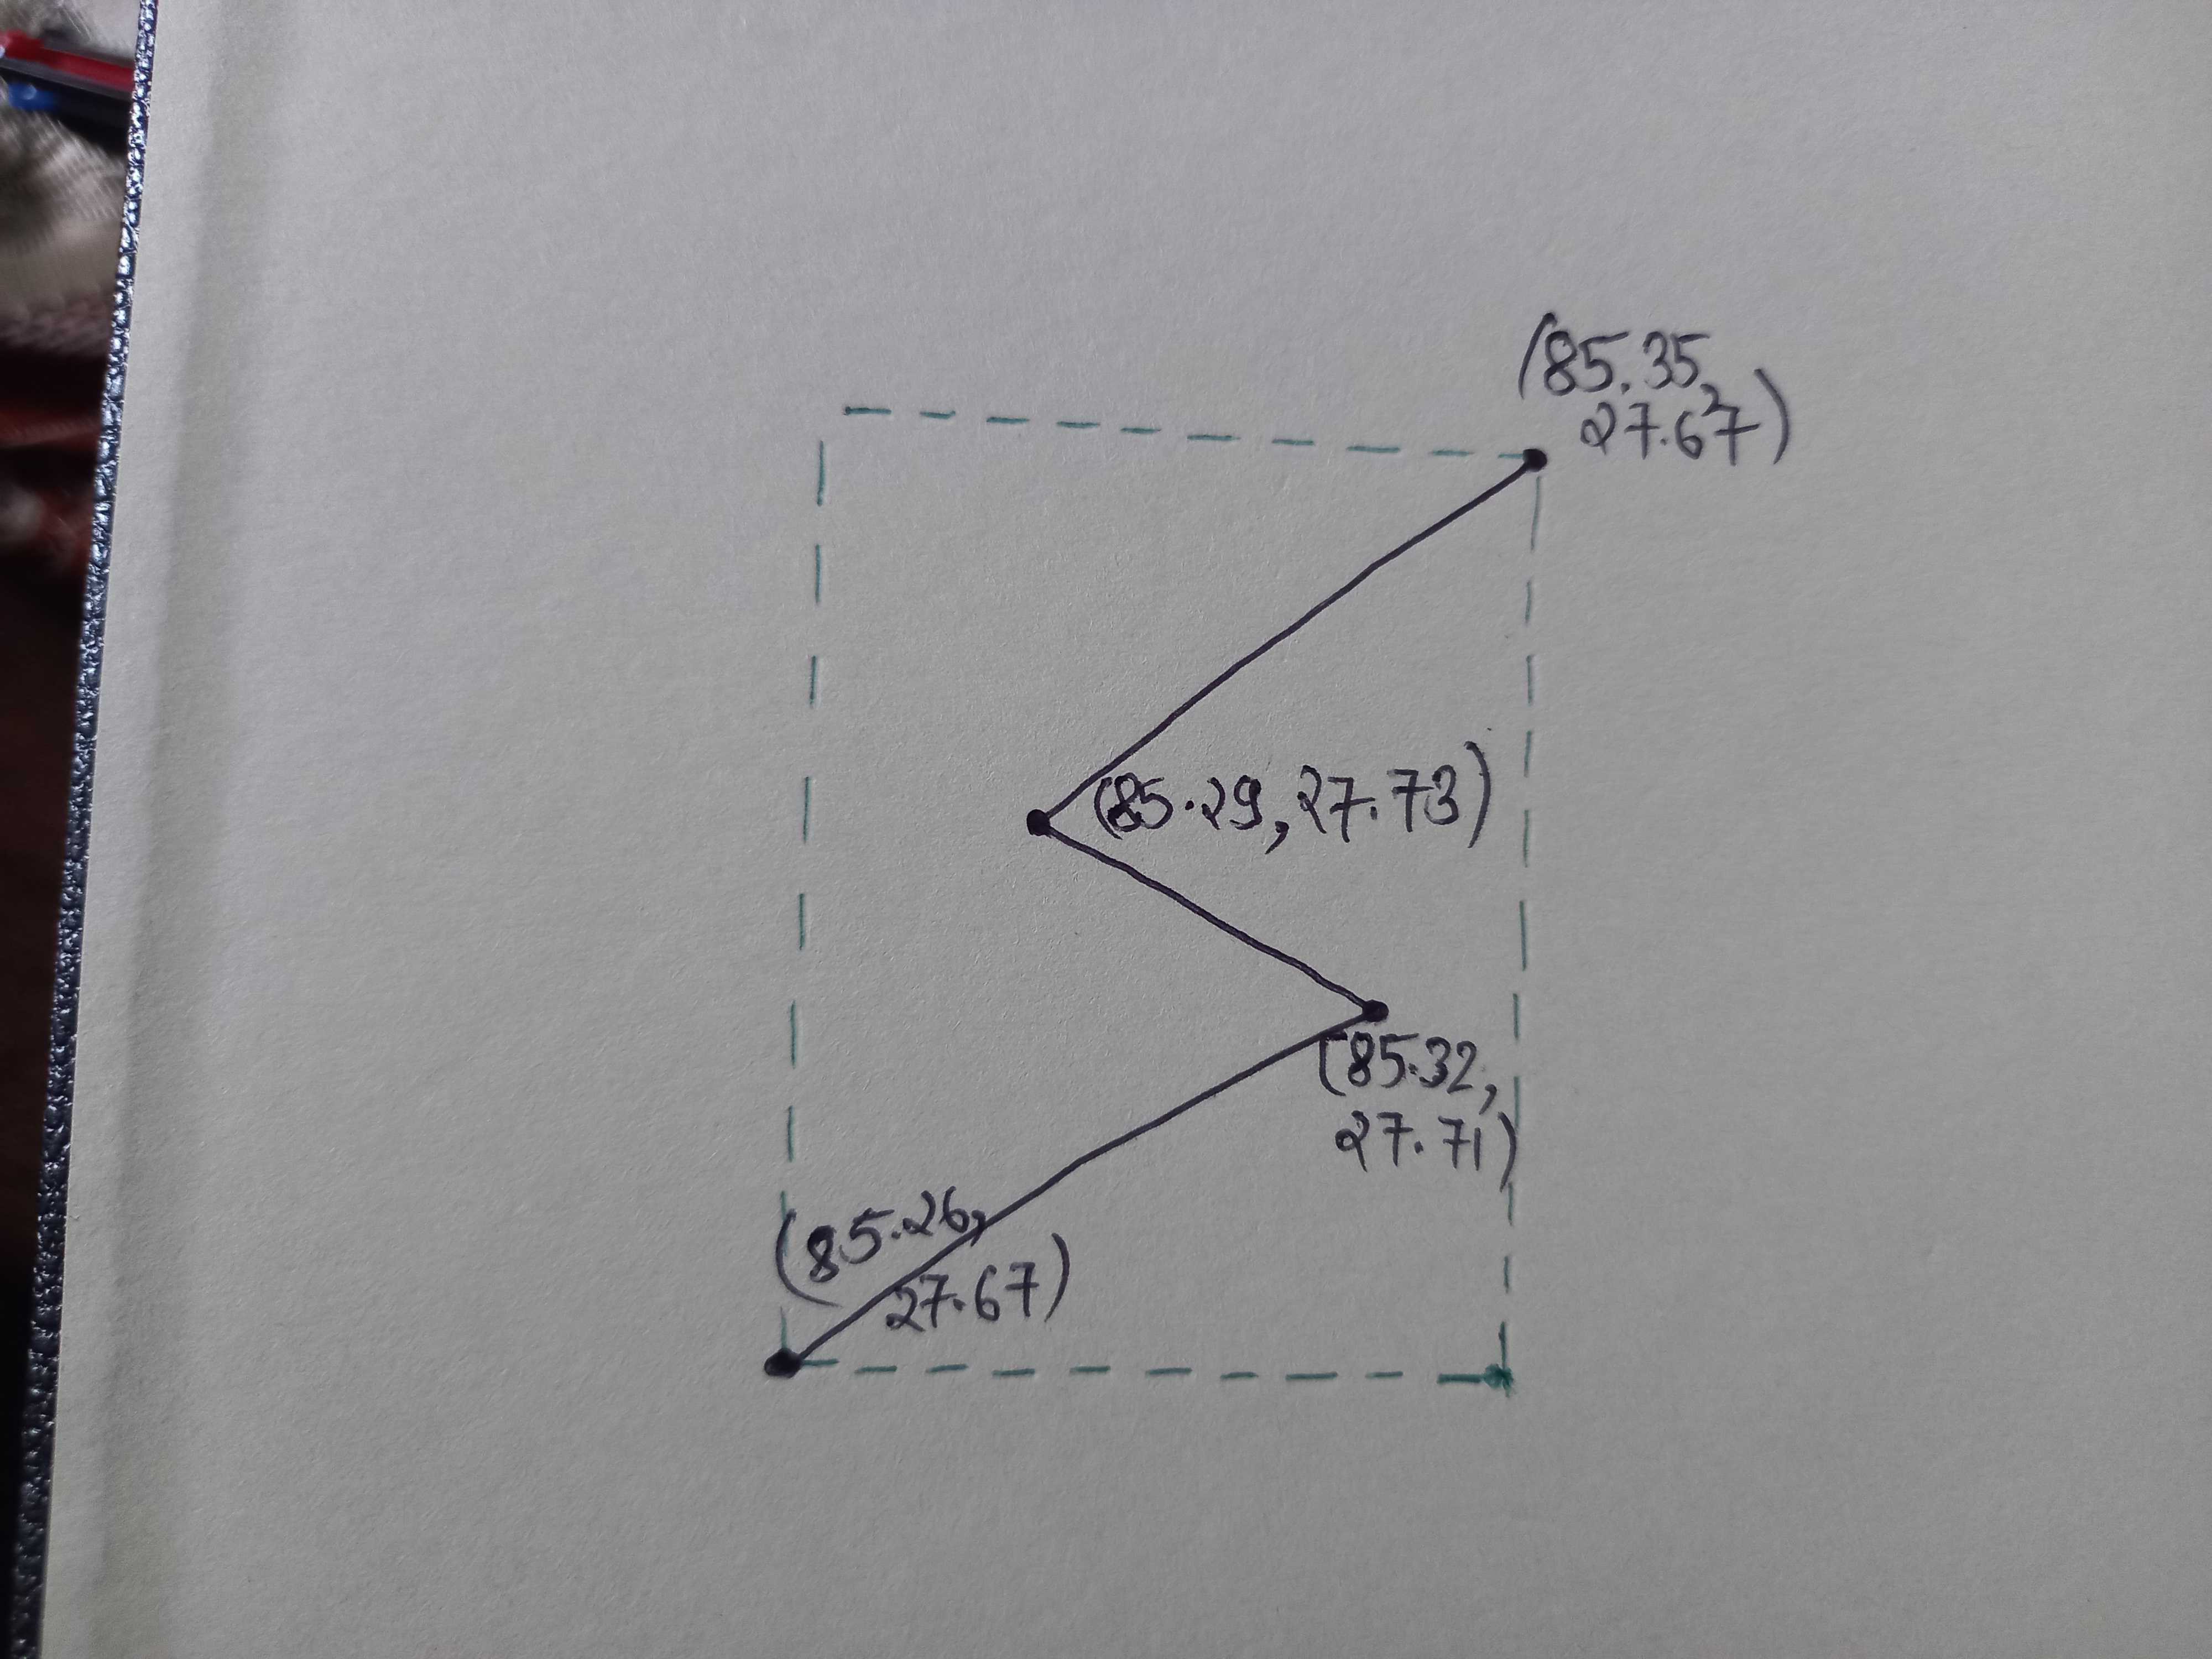 (85.35,
27.67)
(85.29, 27.73)
(85.32,
27.71)
(85.26,
27.67)